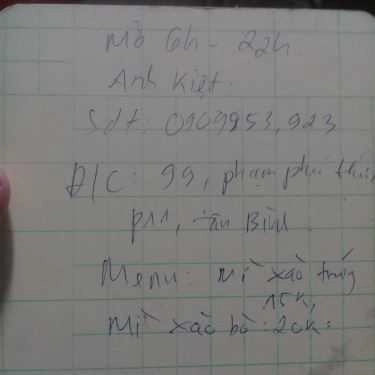 Mở 6h - 22h
Anh Kiệt.
Sđt: 0909853,923
Đ/C: 99, phạm phú thứ
p11, tân Bình.
Menu: Mì xào trứng
15k,
Mì xào bò: 20k: